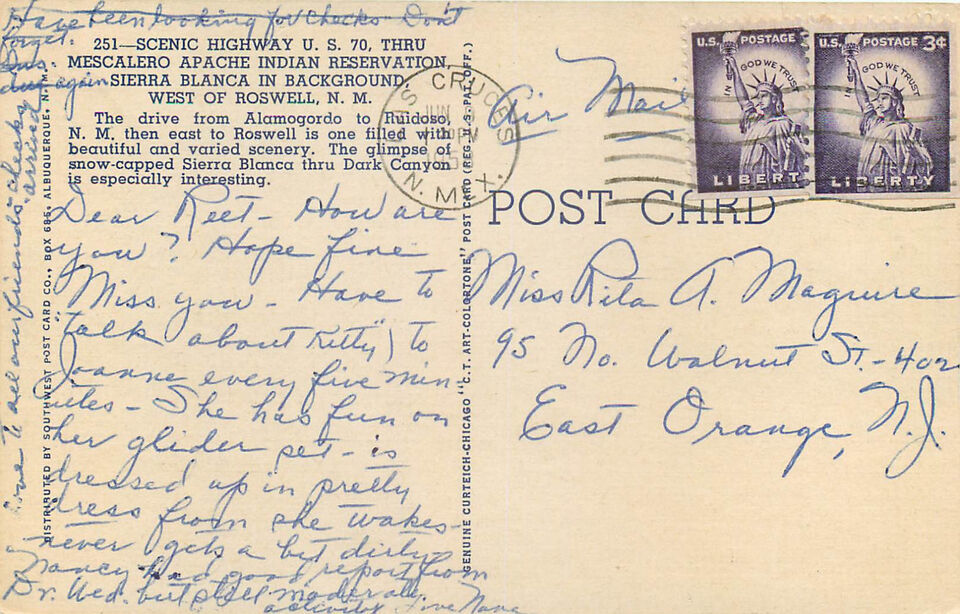 Have been looking for checks - Don't
forget.
again
251—SCENIC HIGHWAY U. S. 70, THRU
MESCALERO APACHE INDIAN RESERVATION,
SIERRA BLANCA IN BACKGROUND,
WEST OF ROSWELL, N. M.
The drive from Alamogordo to Ruidoso,
N. M. then east to Roswell is one filled with
beautiful and varied scenery. The glimpse of
snow-capped Sierra Blanca thru Dark Canyon
is especially interesting.
Dear Reet - How are
you? Hope fine
Miss you - Have to
"talk about Kitty") to
Joanne every five min
utes - She has fun on
her glider set - is
dressed up in pretty
dress from she wakes -
never gets a bit dirty -
Nancy had good report from
Dr. Wed. but still moderate
activity Love Nana
Love to all our friends - checks
arrived
DISTRIBUTED BY SOUTHWEST POST CARD CO., BOX 685, ALBUQUERQUE, N. M.
GENUINE CURTEICH-CHICAGO "C. T. ART-COLORTONE" POST CARD (REG. U. S. PAT. OFF.)
LAS CRUCES
JUN
PM
N. MEX.
Air Mail
U.S. POSTAGE
IN GOD WE TRUST
LIBERTY
U.S. POSTAGE 3¢
IN GOD WE TRUST
LIBERTY
POST CARD
Miss Rita A. Maguire
95 No. Walnut St. - 402
East Orange, N.J.